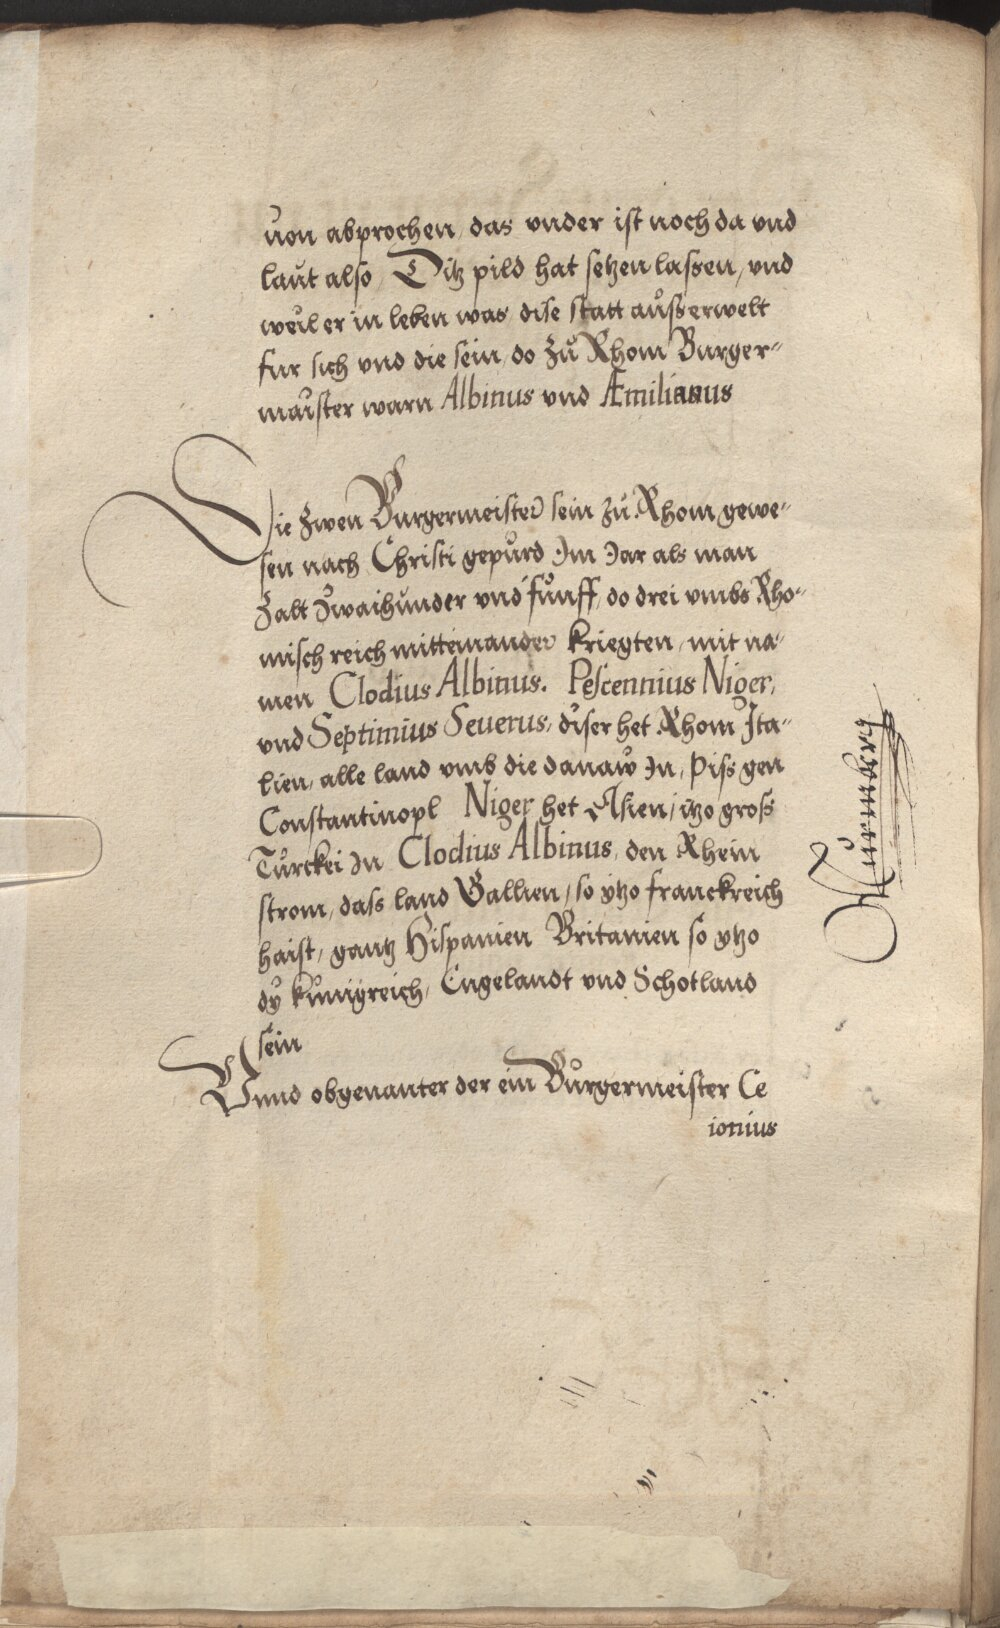 uon abprochen, das vnder ist noch da vnd
laut also, Ditz pild hat setzen lassen, vnd
weil er in leben was dise statt ausserwelt
fur sich vnd die sein, do zu Rhom Burger-
maister warn Albinus vnd Æmilianus
Die zwen Burgermeister sein zu Rhom gewe-
sen nach Christi gepurd Im Jar als man
zalt Zwaihunder vnd funff, do drei vmbs Rho-
misch reich mitteinander kriegten, mit na-
men Clodius Albinus. Pescennius Niger,
vnd Septimius Seuerus, diser het Rhom Ita-
lien, alle land vmb die danaw In, piss gen
Constantinopl Niger het Asien, itzo gross
Turckei In Clodius Albinus, den Rhein
strom, dass land Gallien, so ytzo franckreich
haist, gantz Hispanien Britanien so ytzo
dy kunigreich, Engelandt vnd Schotland
sein
Vnnd obgenanter der ein Burgermeister Ce
ionius
Nurmberg